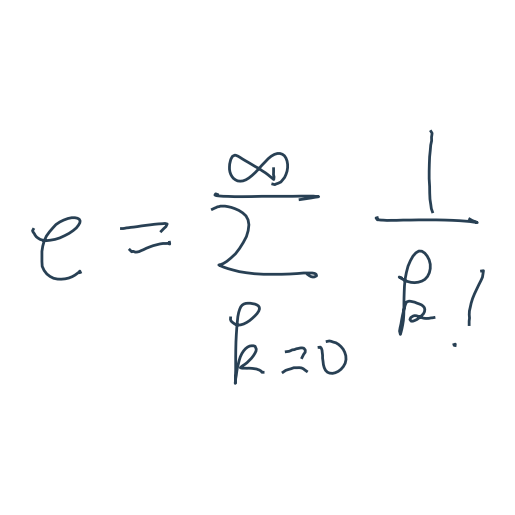 e = \sum_{k=0}^{\infty} \frac{1}{k!}